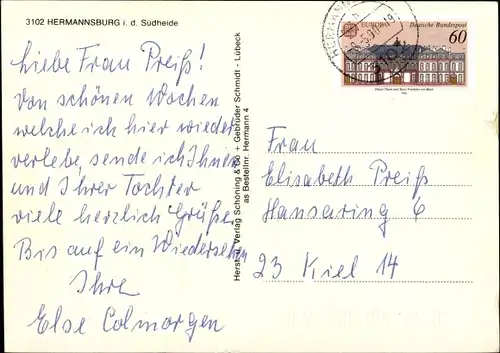 3102 HERMANNSBURG i. d. Südheide
Liebe Frau Preiß!
Von schönen Wochen
welche ich hier wieder
verlebe, sende ich Ihnen
und Ihrer Tochter
viele herzlich Grüße
Bis auf ein Wiedersehen
Ihre
Else Colmorgen
Verlag Schöning & Co + Gebrüder Schmidt - Lübeck
as Bestellnr. Hermann 4
EUROPA
Deutsche Bundespost
60
Frau
Elisabeth Preiß
Hansaring 6
23 Kiel 14